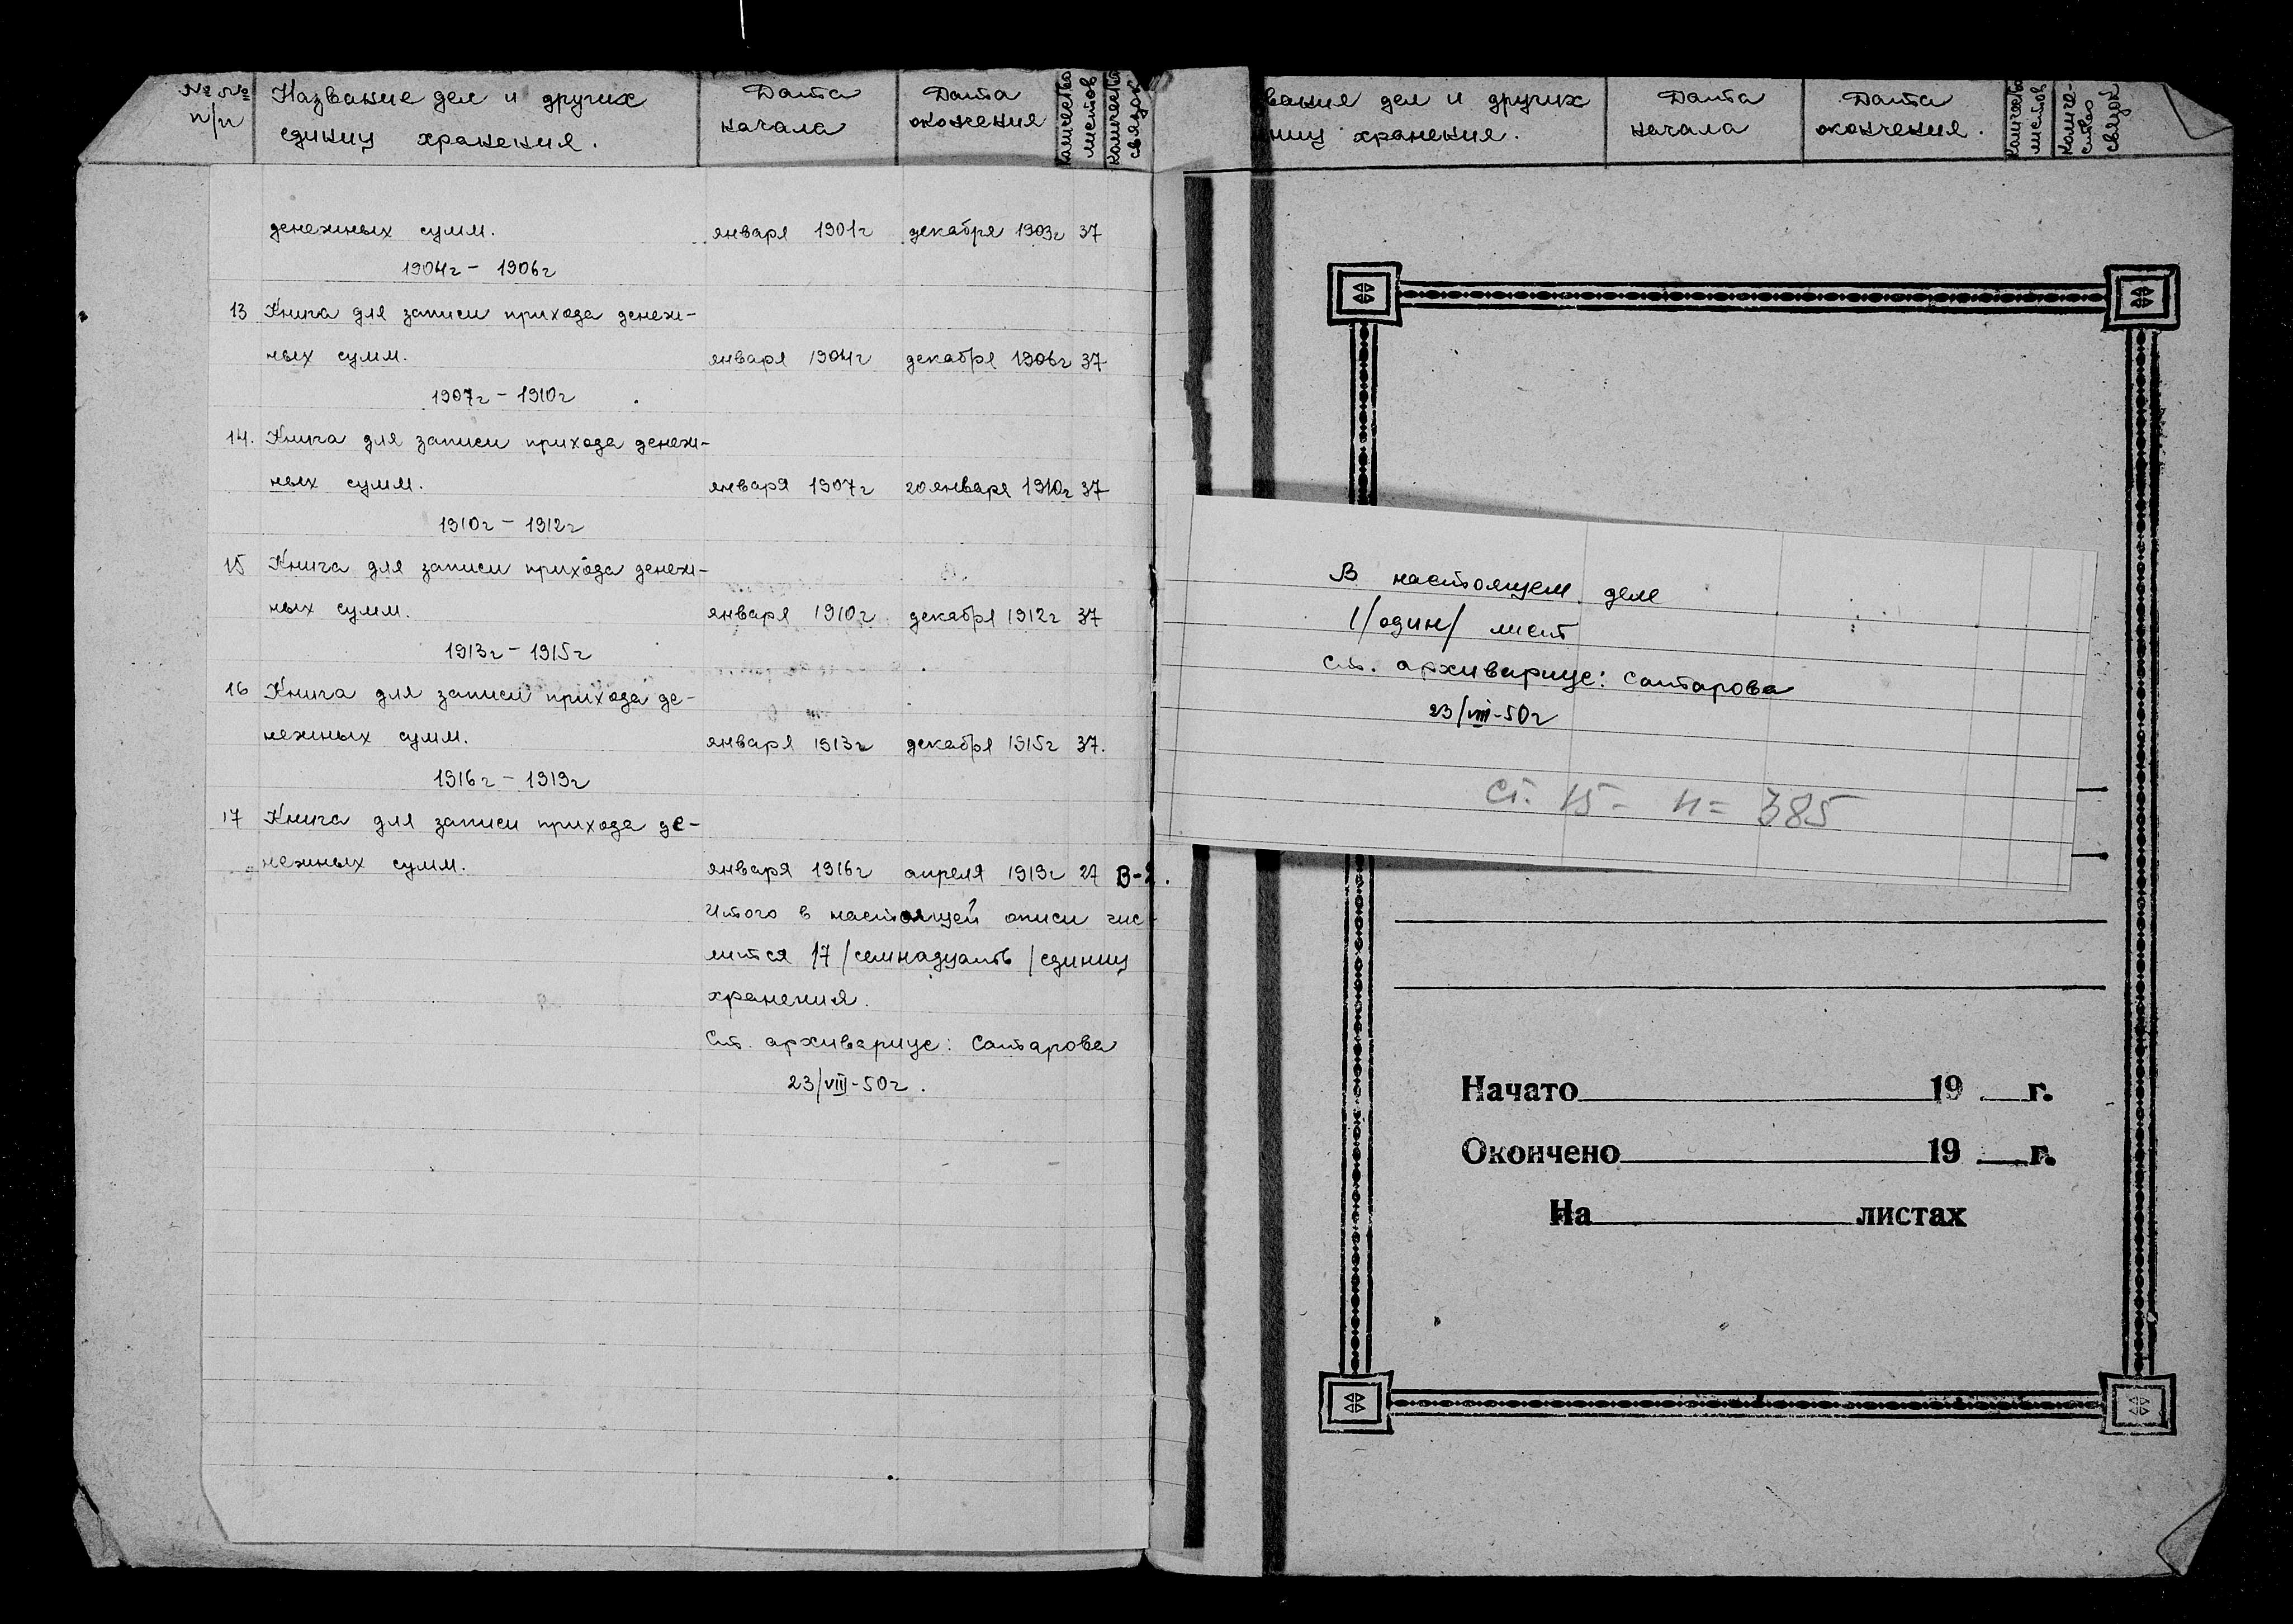 № №
п/п
Название дел и других
единиц хранения.
Дата
начала
Дата
окончения
Количество
листов
Количество
связок
денежных сумм. января 1901г декабря 1903г 37
1904г - 1906г
13 Книга для записи прихода денеж-
ных сумм. января 1904г декабря 1906г 37
1907г - 1910г
14. Книга для записи прихода денеж-
ных сумм. января 1907г 20 января 1910г 37
1910г - 1912г
15 Книга для записи прихода денеж-
ных сумм. января 1910г декабря 1912г 37
1913г - 1915г
16 Книга для записи прихода де-
нежных сумм. января 1913г декабря 1915г 37.
1916г - 1919г
17 Книга для записи прихода де-
нежных сумм. января 1916г апреля 1919г 27
Итого в настоящей описи чис-
лится 17 /семнадцать/ единиц
хранения.
Ст. архивариус: Сатарова
23/VIII-50г.
вания дел и других
ниц хранения.
Дата
начала
Дата
окончения.
Количество
листов
Количе-
ство
связок
В настоящем деле
1/один/ лист
Ст. архивариус: Сатарова
23/VIII-50г
ст. 15 - н = 385
Начато 19 г.
Окончено 19 г.
На листах